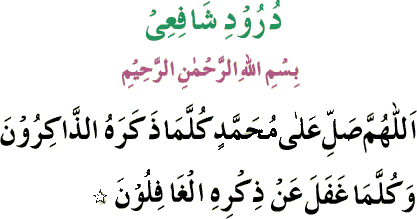 دُرُوْدِ شَافِعِیْ
بِسْمِ اللهِ الرَّحْمٰنِ الرَّحِیْمِ
اَللّٰهُمَّ صَلِّ عَلٰی مُحَمَّدٍ کُلَّمَا ذَکَرَهُ الذَّاکِرُوْنَ
وَکُلَّمَا غَفَلَ عَنْ ذِکْرِهِ الْغَافِلُوْنَ ☆